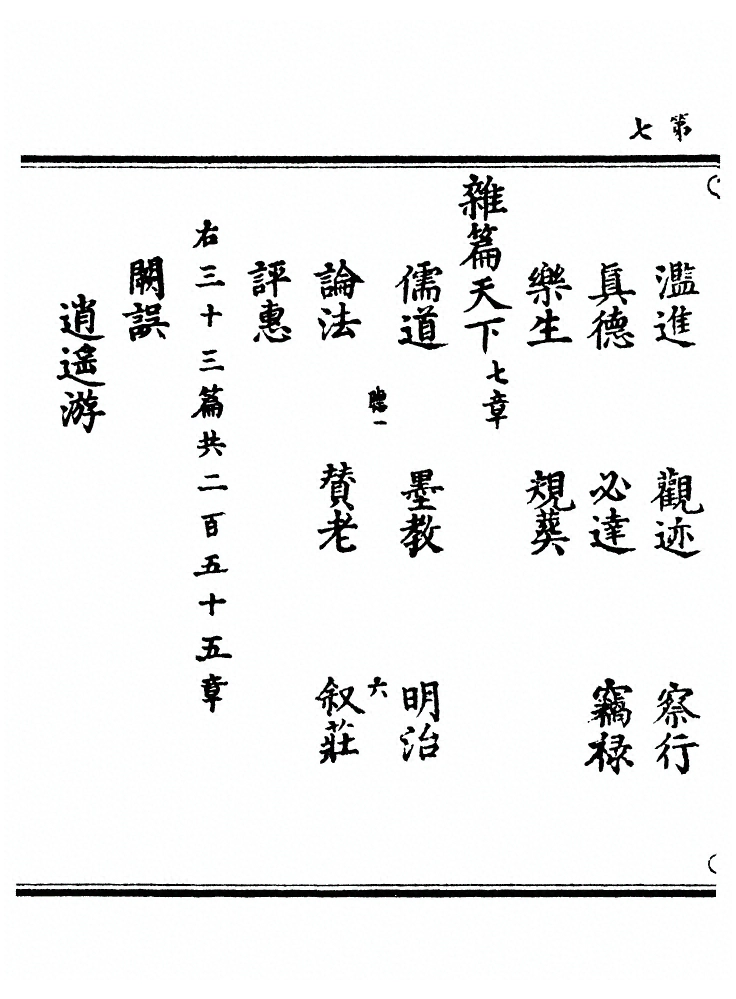 第七
濫進 觀迹 察行
真德 必達 竊祿
樂生 規葬
雜篇天下七章
儒道 墨教 明治
聽一 六
論法 賛老 叙莊
評惠
右三十三篇共二百五十五章
闕誤
逍遙游